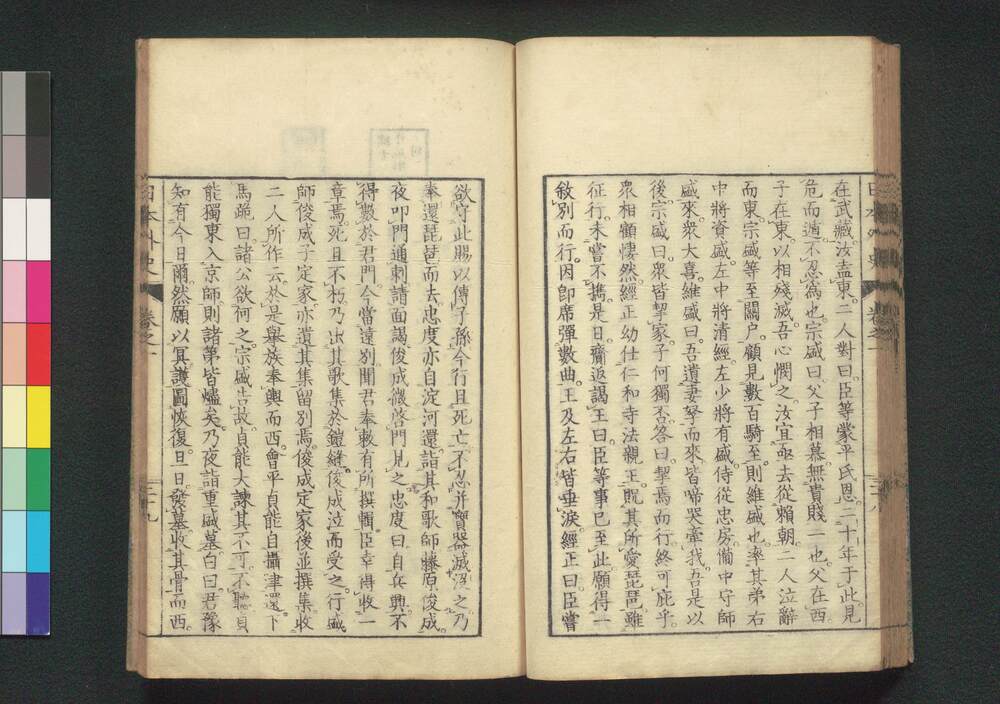 在武藏。汝盍東。二人對曰。臣等蒙平氏恩。二十年于此。見
危而遁。不忍為也。宗盛曰。父子相慕。無貴賤一也。父在西
子在東。以相殘滅。吾心憫之。汝宜亟去從賴朝。二人泣辭
而東。宗盛等至關戶。顧見數百騎至。則維盛也。率其弟右
中將資盛。左中將清經。左少將有盛。侍從忠房。備中守師
盛來。衆大喜。維盛曰。吾遺妻孥而來。皆啼哭牽我。吾是以
後。宗盛曰。衆皆挈家。子何獨否。答曰。挈焉而行。終可庇乎。
衆相顧悽然。經正幼仕仁和寺法親王。貺其所愛琵琶。雖
征行。未嘗不攜。是日齎返。謁王曰。臣等事已至此。願得一
敘別而行。因卽席彈數曲。王及左右皆垂淚。經正曰。臣嘗
欲守此賜以傳子孫。今行且死亡。不忍并寶器滅沒之。乃
奉還琵琶而去。忠度亦自淀河還。詣其和歌師藤原俊成。
夜叩門通刺請面謁。俊成微啓門見之。忠度曰。自兵興。不
得數於君門。今當遠別。聞君奉敕有所撰輯。臣幸得收一
章焉。死且不朽。乃出其歌集於鎧縫。俊成泣而受之。行盛
師俊成子定家。亦遺其集留別焉。俊成定家後並撰集收
二人所作云。於是擧族奉輿而西。會平貞能自攝津還。下
馬跪曰。諸公欲何之。宗盛告故。貞能大諫其不可。不聽。貞
能獨東入京師。則諸第皆爐矣。乃夜詣重盛墓。白曰。君豫
知有今日爾。然願以冥護圖恢復。旦日發墓收其骨而西。
日本外史 卷之一